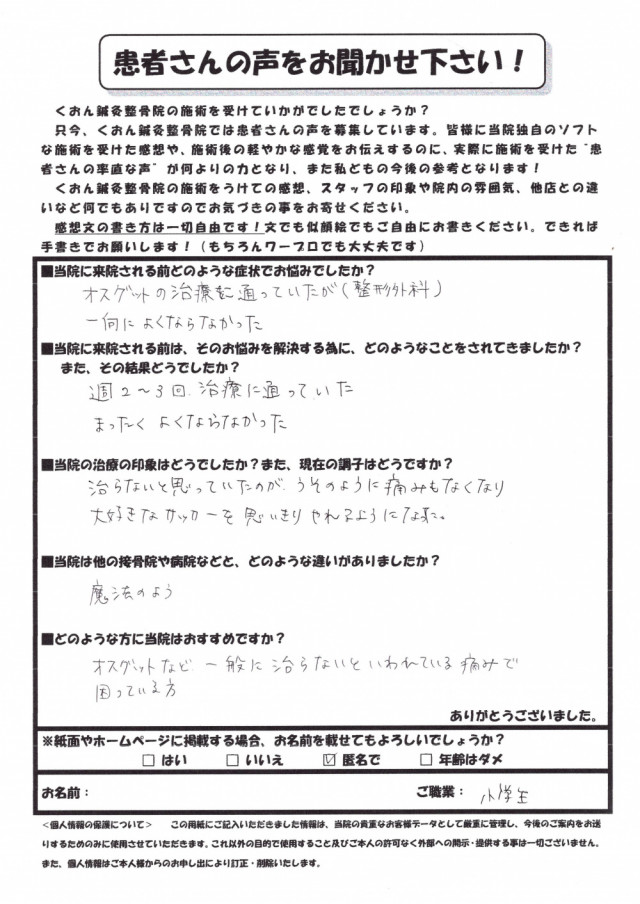 患者さんの声をお聞かせ下さい！
くおん鍼灸整骨院の施術を受けていかがでしたでしょうか？
只今、くおん鍼灸整骨院では患者さんの声を募集しています。皆様に当院独自のソフト
な施術を受けた感想や、施術後の軽やかな感覚をお伝えするのに、実際に施術を受けた“患
者さんの率直な声”が何よりの力となり、また私どもの今後の参考となります！
くおん鍼灸整骨院の施術をうけての感想、スタッフの印象や院内の雰囲気、他店との違
いなど何でもありですのでお気づきの事をお寄せください。
感想文の書き方は一切自由です！文でも似顔絵でもご自由にお書きください。できれば
手書きでお願いします！（もちろんワープロでも大丈夫です）
■当院に来院される前どのような症状でお悩みでしたか？
オスグットの治療に通っていたが（整形外科）
一向によくならなかった
■当院に来院される前は、そのお悩みを解決する為に、どのようなことをされてきましたか？
また、その結果どうでしたか？
週2～3回、治療に通っていた
まったく よくならなかった
■当院の治療の印象はどうでしたか？また、現在の調子はどうですか？
治らないと思っていたのが、うそのように痛みもなくなり
大好きなサッカーを思いきりやれるようになった。
■当院は他の接骨院や病院などと、どのような違いがありましたか？
魔法のよう
■どのような方に当院はおすすめですか？
オスグットなど、一般に治らないといわれている痛みで
困っている方
ありがとうございました。
※紙面やホームページに掲載する場合、お名前を載せてもよろしいでしょうか？
□ はい □ いいえ ☑ 匿名で □ 年齢はダメ
お名前： ご職業： 小学生
＜個人情報の保護について＞ この用紙にご記入いただきました情報は、当院の貴重なお客様データとして厳重に管理し、今後のご案内をお送
りするためのみに使用させていただきます。これ以外の目的で使用すること及びご本人の許可なく外部への開示・提供する事は一切ございません。
また、個人情報はご本人様からのお申し出により訂正・削除いたします。